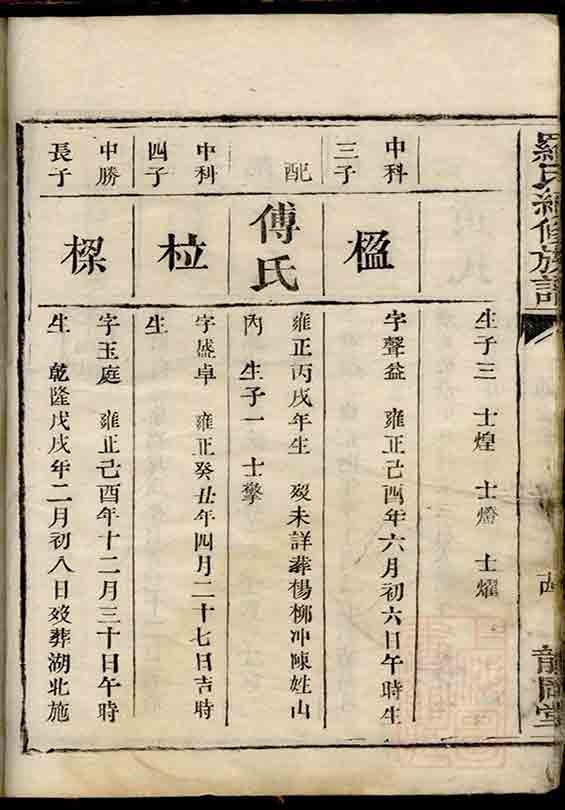 羅氏續修族譜
龍門堂
生子三 士煌 士燈 士耀
中科
三子
楹
字聲益 雍正己酉年六月初六日午時生
配
傅氏
雍正丙戌年生 歿未詳葬楊柳冲陳姓山
內 生子一 士擎
中科
四子
柆
字盛卓 雍正癸丑年四月二十七日吉時
生
中勝
長子
樑
字玉庭 雍正己酉年十二月三十日午時
生 乾隆戊戌年二月初八日歿葬湖北施